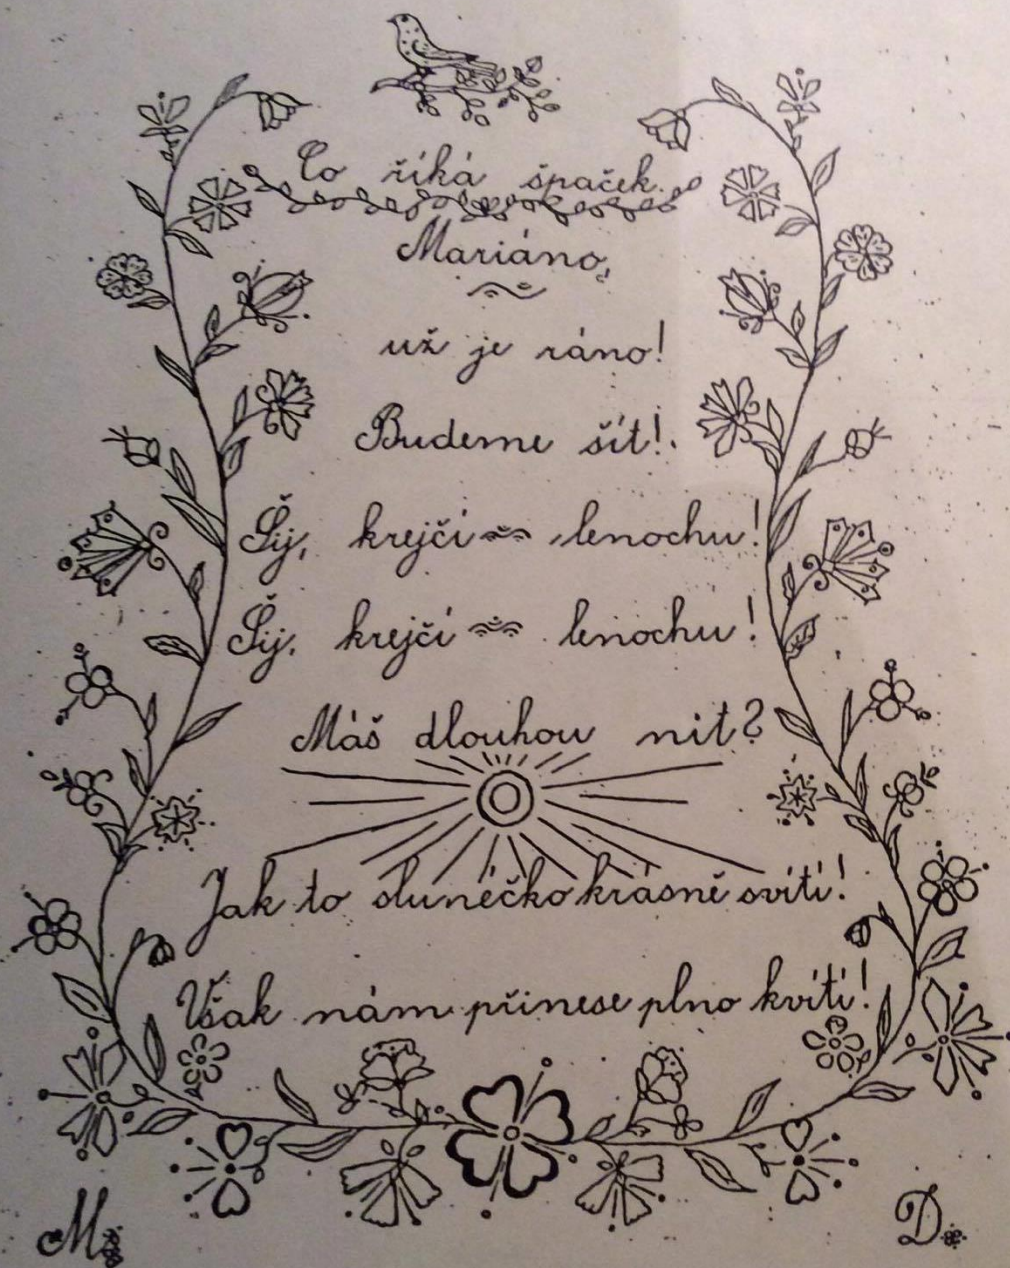 Co říká špaček.
Mariáno,
už je ráno!
Budeme šít!
Šij, krejčí lenochu!
Šij, krejčí lenochu!
Máš dlouhou nit?
Jak to slunéčko krásně svítí!
Však nám přinese plno kvítí!
M. D.